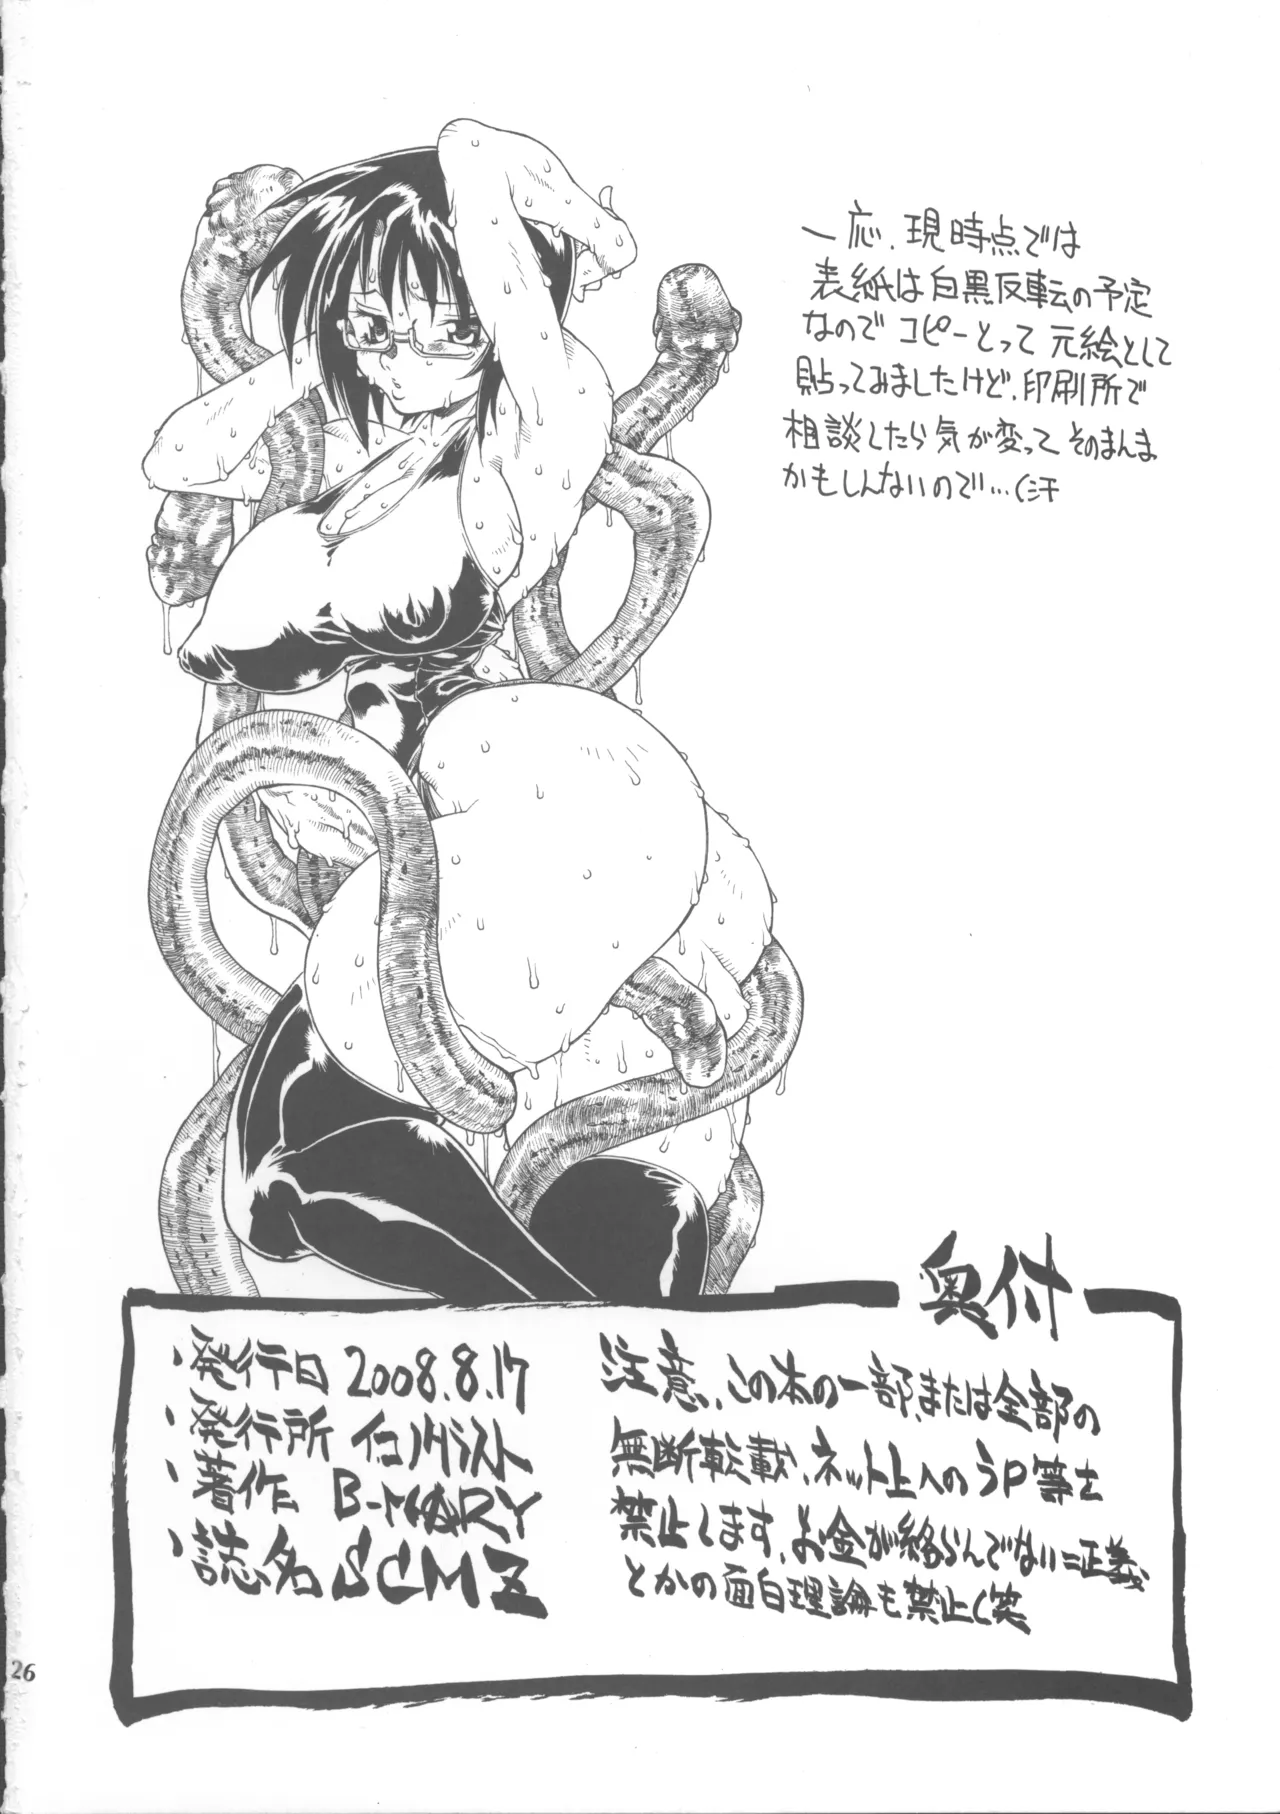 一応、現時点では
表紙は白黒反転の予定
なのでコピーとって元絵として
貼ってみましたけど、印刷所で
相談したら気が変ってそのまんま
かもしんないので…(汗
奥付
・発行日 2008.8.17
・発行所 イコノグラシスト
・著作 B-MARY
・誌名 SCMZ
注意、この本の一部、または全部の
無断転載、ネット上へのうP等を
禁止します、お金が絡らんでない=正義
とかの面白理論も禁止(笑
26